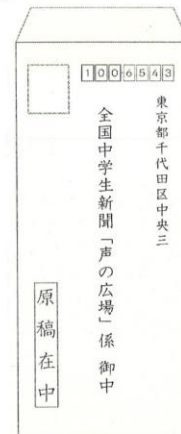 100-6543
東京都千代田区中央三
全国中学生新聞「声の広場」係 御中
原稿在中